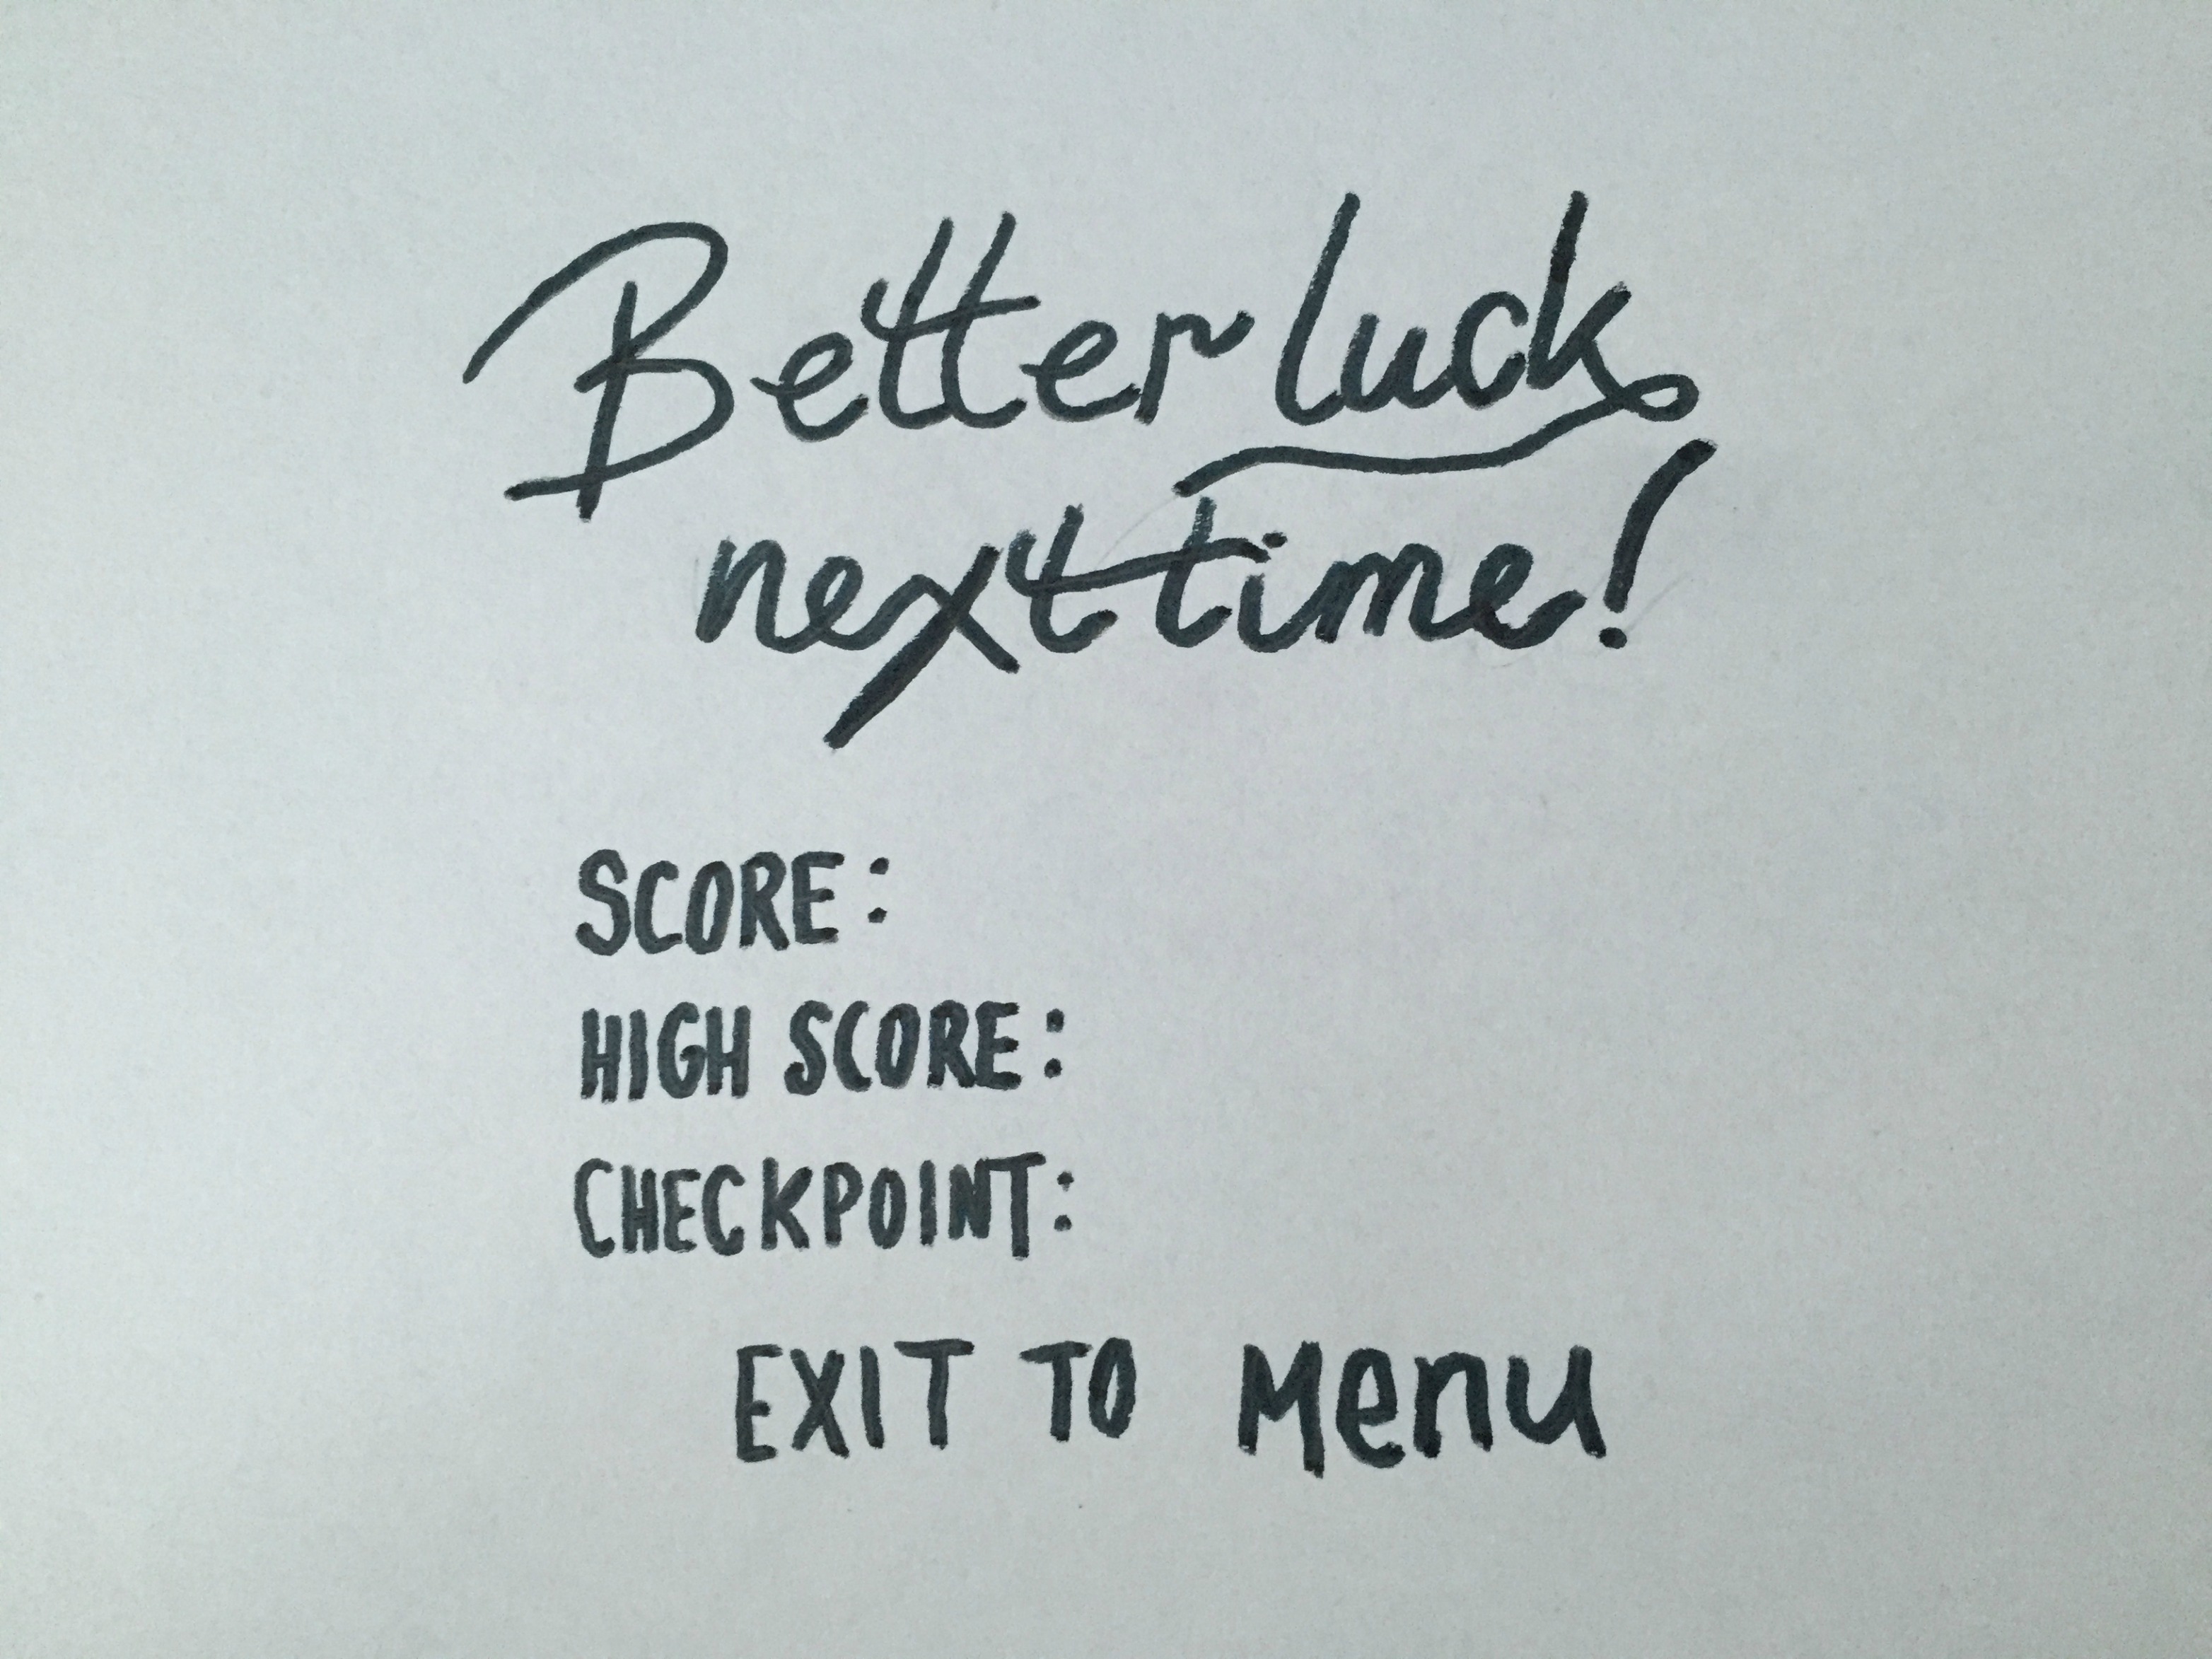 Better luck
next time!
SCORE:
HIGH SCORE:
CHECKPOINT:
EXIT TO Menu